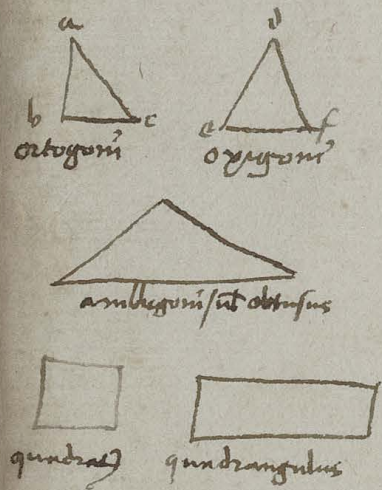 a
d
b c
e f
ortogoni᷒
oxigoni᷒
ambligoni᷒ / ul̃ obtusus
quadratꝰ
quadrangulus